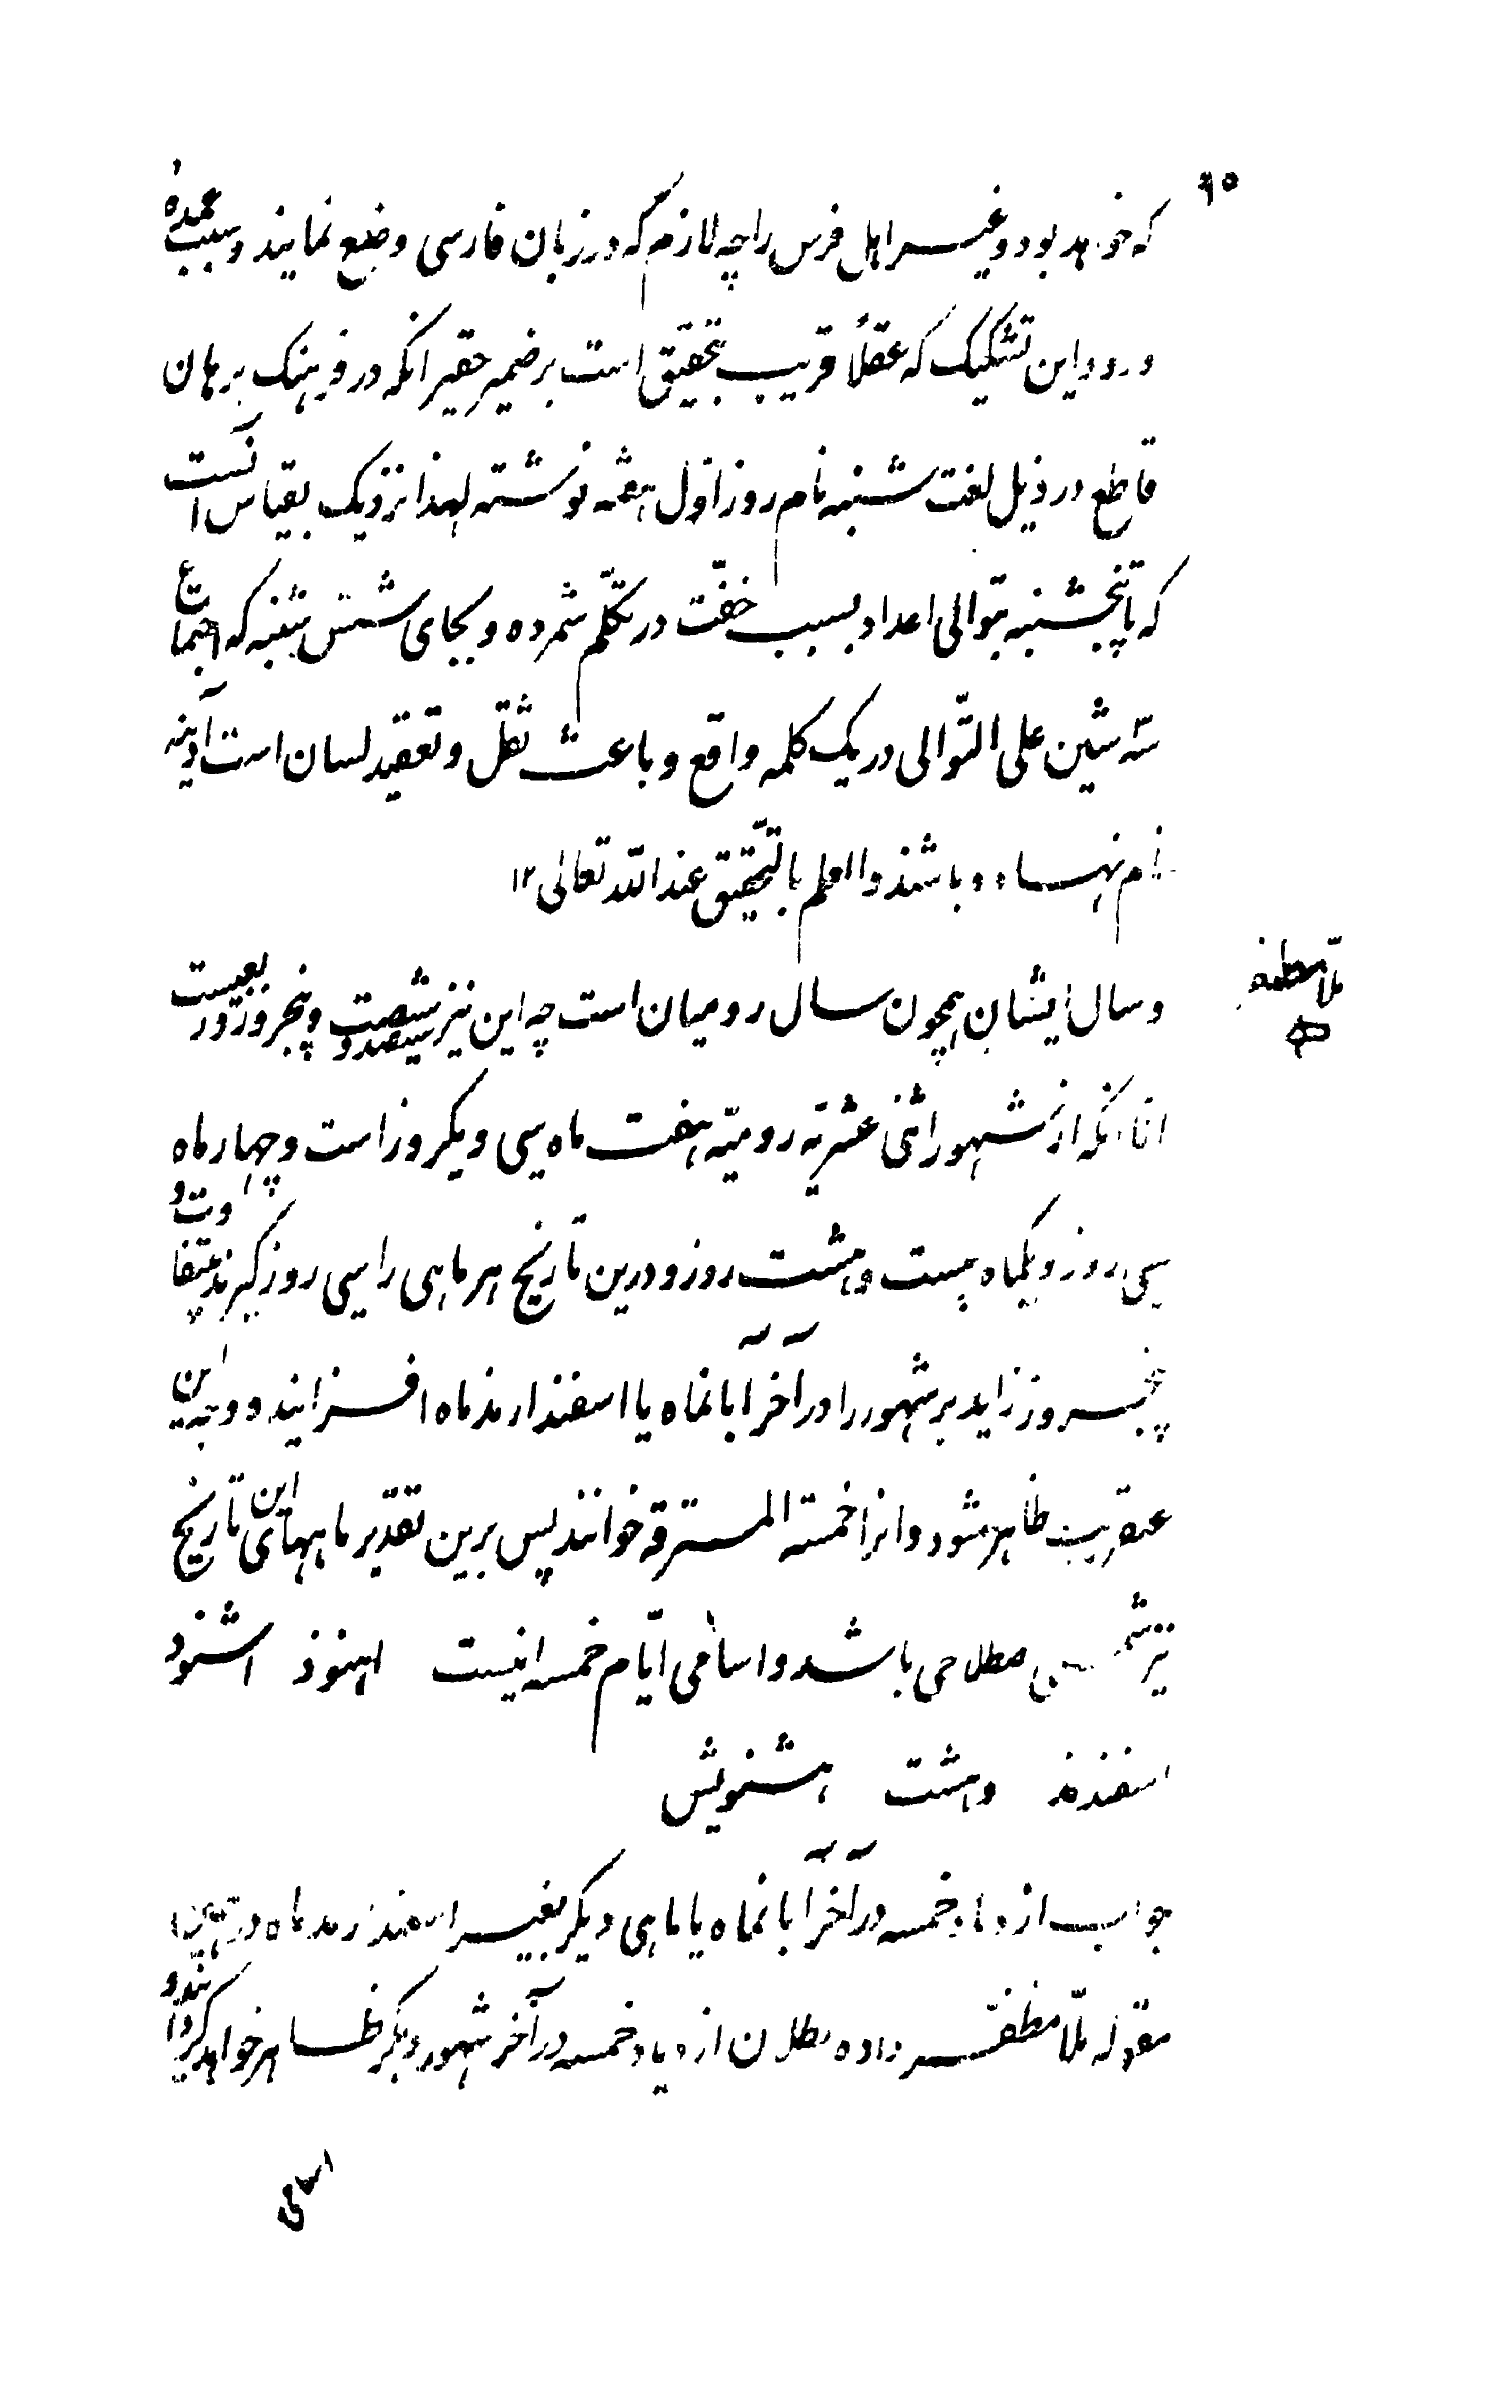 ۹۵
که خواهد بود و غیر اهل فرس را چه لازم که در زبان فارسی وضع نمایند و سبب عمدهٔ
ورود این تشکیک که عقلاً قریب بتحقیق است بر ضمیر حقیر انکه در فرهنک برهان
قاطع در ذیل لغت شنبه نام روز اوّل هفته نوشته لهذا نزدیک بقیاس آنست
که تا پنجشنبه بتوالی اعداد بسبب خفّت در تکلّم شمرده و بجای شش شنبه که اجتماع
سّه شین علی التّوالی در یک کلمه واقع و باعث ثقل و تعقید لسان است آدینه
نام نهاده باشند والعلم بالتّحقیق عند اللّه تعالی ۱۲
ملّا مظفر
و سال ایشان همچون سال رومیان است چه این نیز سیصد و شصت و پنجروز و ربعیست
امّا آنکه از شهور اثنی عشریّه رومیّه هفت ماه سی و یکروز است و چهار ماه
سی روز و یکماه بیست و هشت روز و درین تاریخ هر ماهی را سی روز کیرند بی تفاوت و
پنجروز زاید بر شهور را در آخر آبانماه یا اسفندارمذماه افزایند و وجه این
عنقریب ظاهر شود و انرا خمسته المسترقه خوانند پس برین تقدیر ماههای این تاریخ
نیز شمسی اصطلاحی باشد و اسامی ایّام خمسه اینست اهنوذ اشنوذ
اسفندمذ وهشت هشتویش
جواب ازدیاد خمسه در آخر آبانماه یا ماهی دیکر بغیر اسفندارمذماه در
مقوله ملّا مظفّر داده بطلان ازدیاد خمسه در آخر شهور دیکر ظاهر خواهد
اسامی